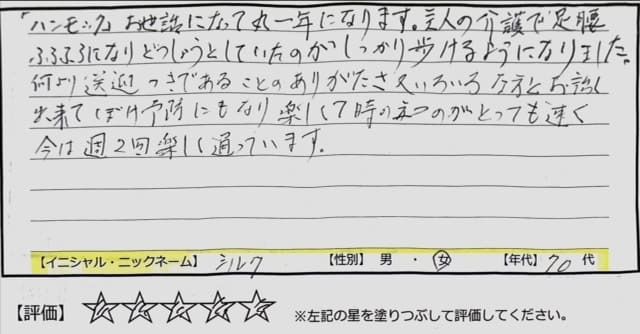 「ハンモック」お世話になって丸一年になります。主人の介護で足腰
ふらふらになりどうしようとしていたのがしっかり歩けるようになりました。
何より送迎つきであることのありがたさ又いろいろな方とお話し
出来てぼけ予防にもなり楽しくて時の立つのがとっても速く
今は週2回楽しく通っています。
【イニシャル・ニックネーム】 シルク 【性別】 男 ・ 女 【年代】 70 代
【評価】 ☆☆☆☆☆ ※左記の星を塗りつぶして評価してください。